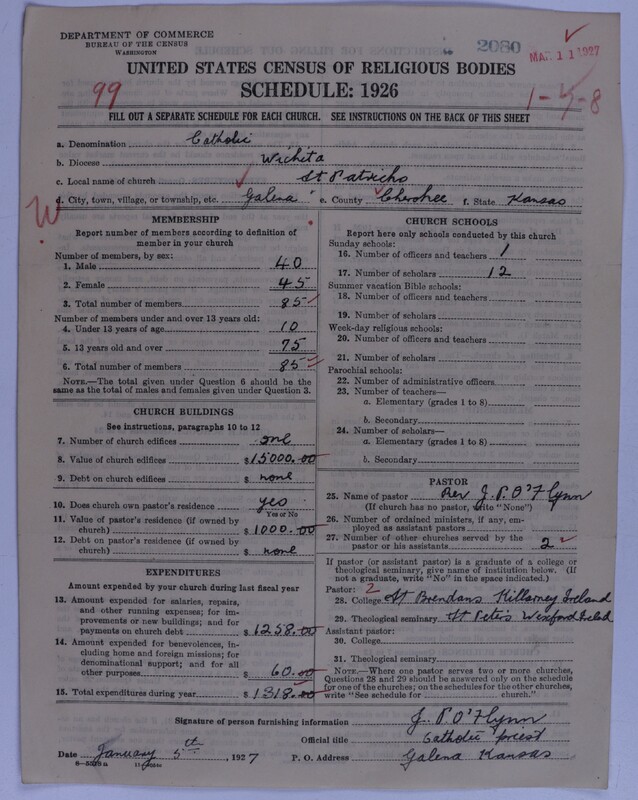 DEPARTMENT OF COMMERCE
BUREAU OF THE CENSUS
WASHINGTON
2080
MAR 11 1927
UNITED STATES CENSUS OF RELIGIOUS BODIES
SCHEDULE: 1926
99
1-5-8
FILL OUT A SEPARATE SCHEDULE FOR EACH CHURCH. SEE INSTRUCTIONS ON THE BACK OF THIS SHEET
a. Denomination Catholic
b. Diocese Wichita
c. Local name of church St Patricks
d. City, town, village, or township, etc. Galena e. County Cherokee f. State Kansas
W
MEMBERSHIP
Report number of members according to definition of
member in your church
Number of members, by sex:
1. Male 40
2. Female 45
3. Total number of members 85
Number of members under and over 13 years old:
4. Under 13 years of age 10
5. 13 years old and over 75
6. Total number of members 85
NOTE.—The total given under Question 6 should be the
same as the total of males and females given under Question 3.
CHURCH BUILDINGS
See instructions, paragraphs 10 to 12
7. Number of church edifices one
8. Value of church edifices $15000.00
9. Debt on church edifices $ none
10. Does church own pastor's residence yes
Yes or No
11. Value of pastor's residence (if owned by
church) $ 1000.00
12. Debt on pastor's residence (if owned by
church) $ none
EXPENDITURES
Amount expended by your church during last fiscal year
13. Amount expended for salaries, repairs,
and other running expenses; for im-
provements or new buildings; and for
payments on church debt $ 1258.00
14. Amount expended for benevolences, in-
cluding home and foreign missions; for
denominational support; and for all
other purposes $ 60.00
15. Total expenditures during year $ 1318.00
CHURCH SCHOOLS
Report here only schools conducted by this church
Sunday schools:
16. Number of officers and teachers 1
17. Number of scholars 12
Summer vacation Bible schools:
18. Number of officers and teachers
19. Number of scholars
Week-day religious schools:
20. Number of officers and teachers
21. Number of scholars
Parochial schools:
22. Number of administrative officers
23. Number of teachers—
a. Elementary (grades 1 to 8)
b. Secondary
24. Number of scholars—
a. Elementary (grades 1 to 8)
b. Secondary
PASTOR
25. Name of pastor Rev J. P. O'Flynn
(If church has no pastor, write "None")
26. Number of ordained ministers, if any, em-
ployed as assistant pastors
27. Number of other churches served by the
pastor or his assistants 2
If pastor (or assistant pastor) is a graduate of a college or
theological seminary, give name of institution below. (If
not a graduate, write "No" in the space indicated.)
Pastor: 2
28. College St Brendans Killarney Ireland
29. Theological seminary St Peters Wexford Ireland
Assistant pastor:
30. College
31. Theological seminary
NOTE.—Where one pastor serves two or more churches,
Questions 28 and 29 should be answered only on the schedule
for one of the churches; on the schedules for the other churches,
write "See schedule for church."
Signature of person furnishing information J. P O'Flynn
Official title Catholic priest
Date January 5th, 1927
P. O. Address Galena Kansas